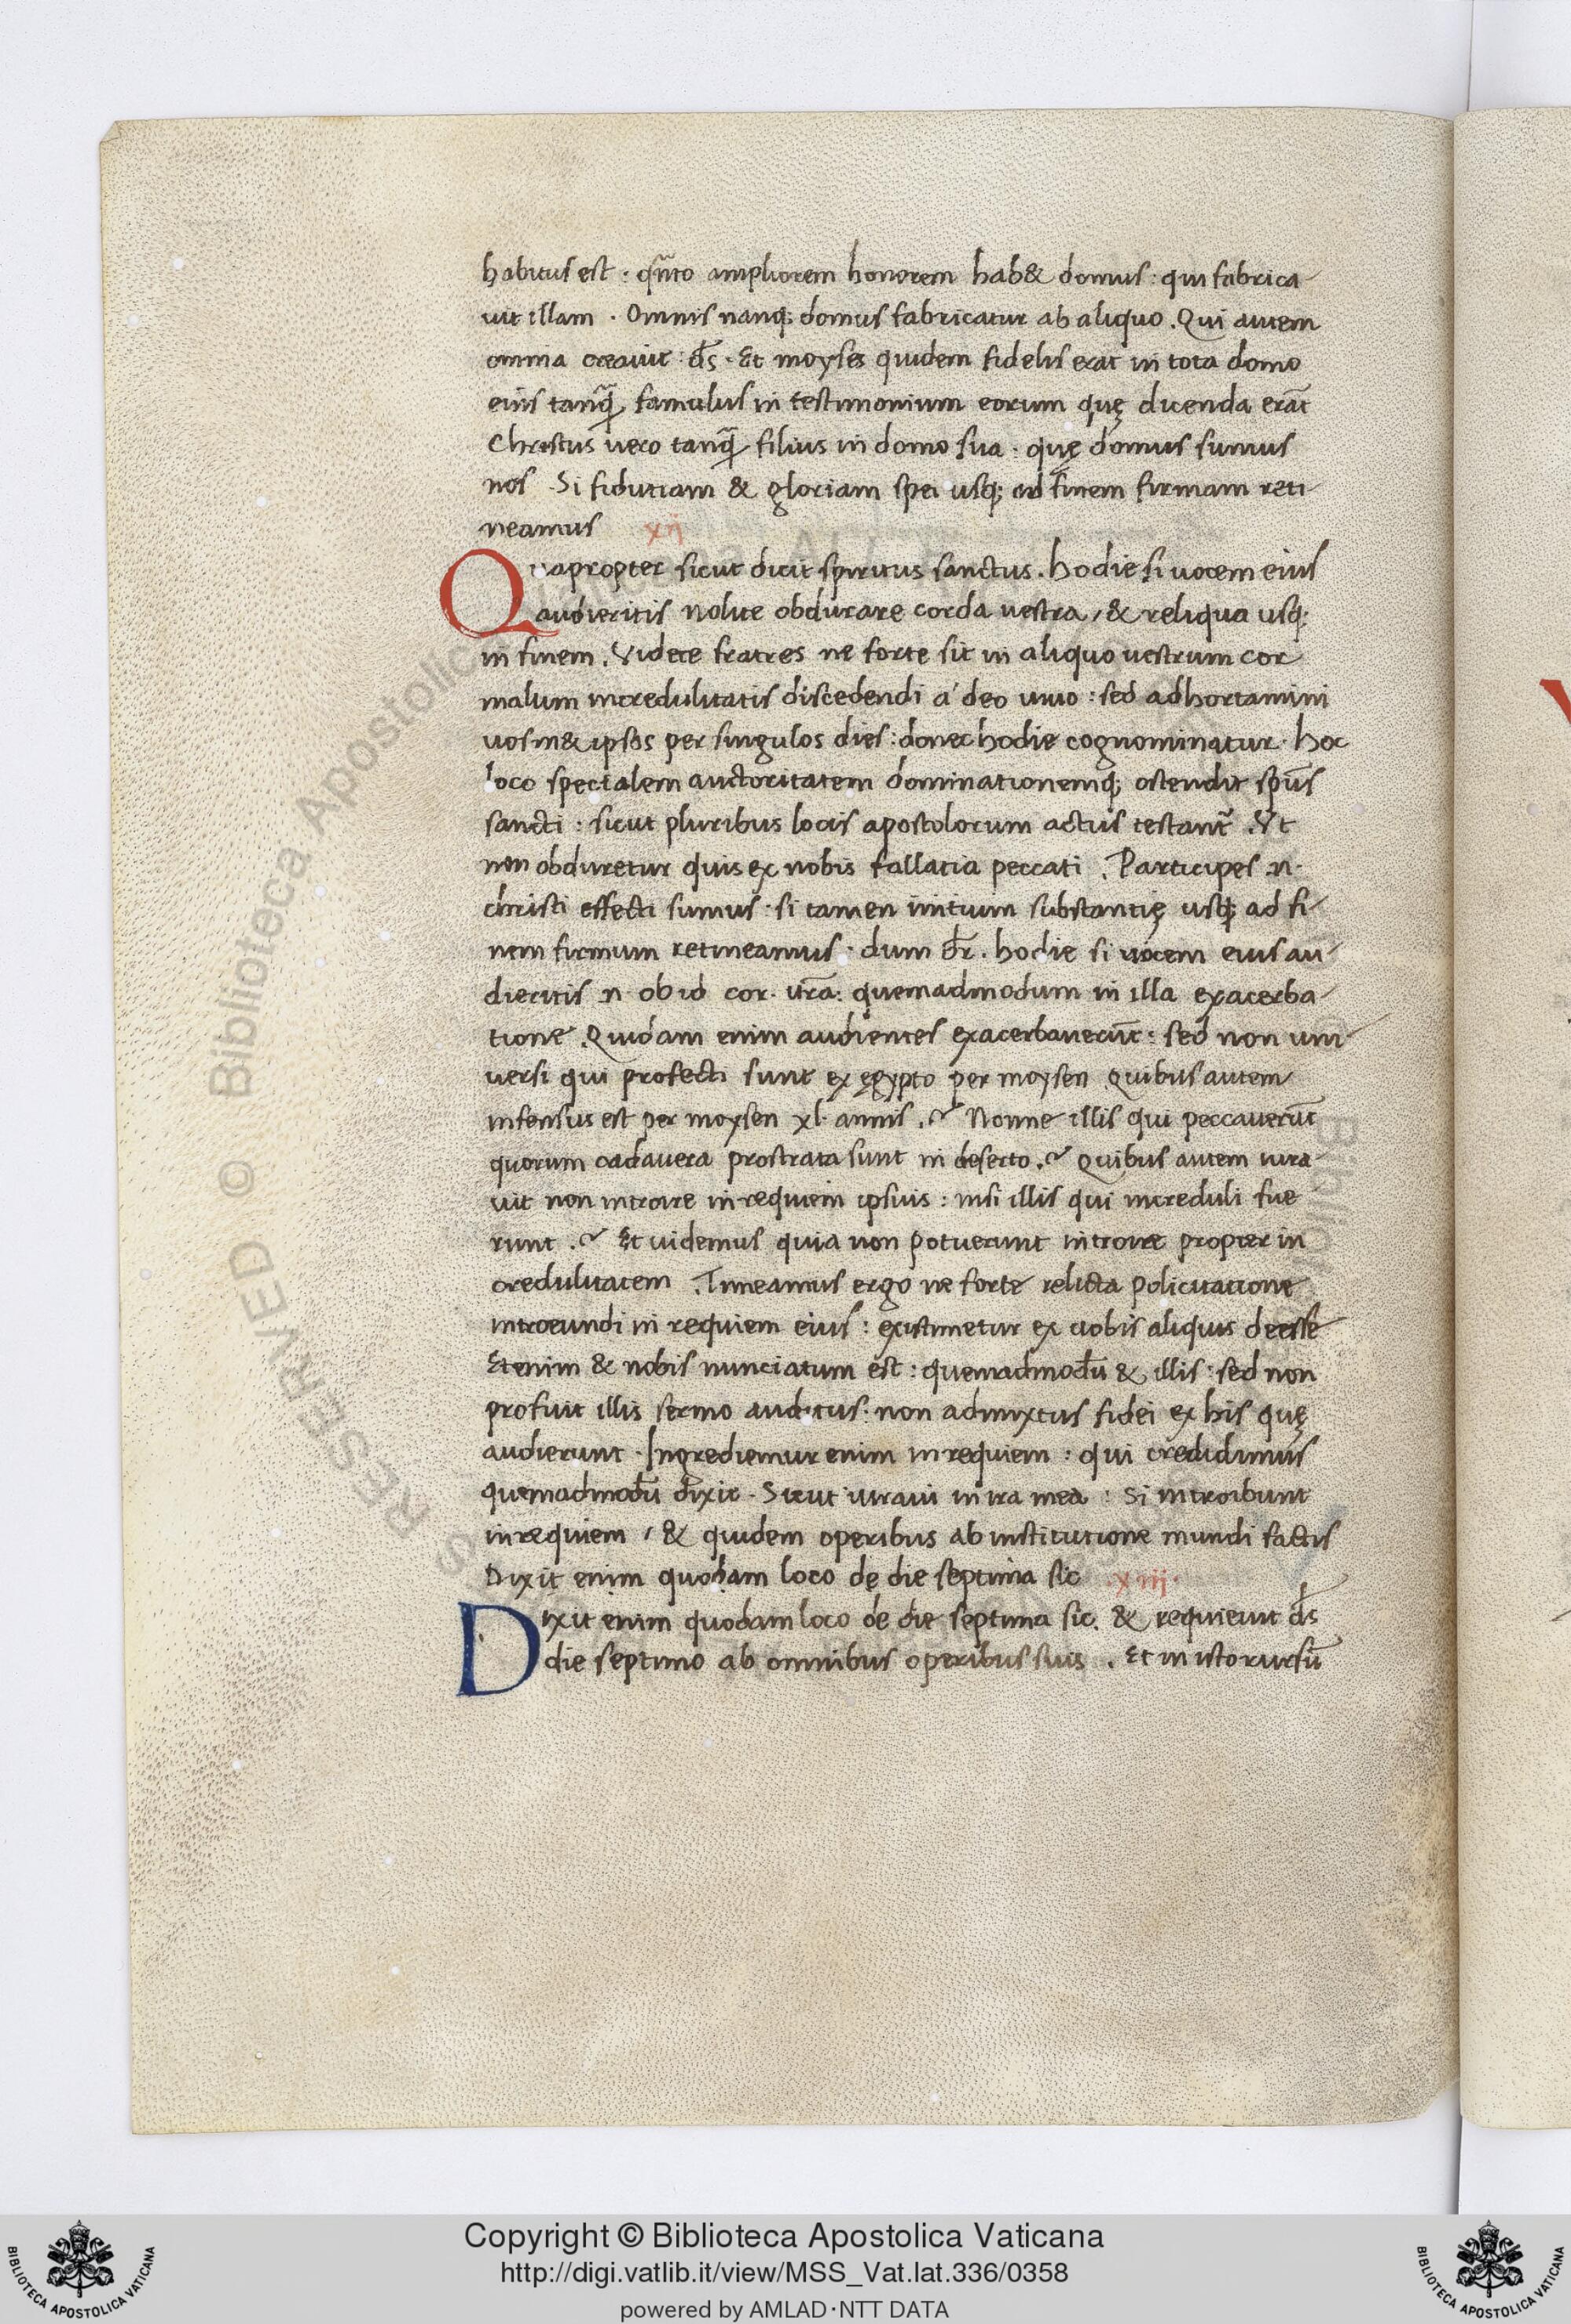 habitus est · qñto ampliorem honorem hab& domus : qui fabrica
uit illam · Omnis nanq; domus fabricatur ab aliquo . Qui autem
omnia creauit : d̄s · Et moyses quidem fidelis erat in tota domo
eius tanq̃ famulus in testimonium eorum quę dicenda erāt
Christus uero tanq̃ filius in domo sua · quę domus sumus
nos · Si fidutiam & gloriam spei usq; ad finem firmam reti
neamus xij
Quapropter sicut dicit spiritus sanctus . hodie si uocem eius
audieritis nolite obdurare corda uestra , & reliqua usq;
in finem . Videte fratres ne forte sit in aliquo uestrum cor
malum incredulitatis discedendi a deo uiuo : sed adhortamini
uosm&ipsos per singulos dies : donec hodie cognominatur · hoc
loco specialem auctoritatem dominationemq; ostendit sp̄us
sancti : sicut pluribus locis apostolorum actus testant̃ . Vt
non obduretur quis ex nobis fallatia peccati . Participes .n.
christi effecti sumus : si tamen initium substantię usq; ad fi
nem firmum retineamus · dum d̄r . hodie si uocem eius au
dieritis n ob id cor · ūra : quemadmodum in illa exacerba
tione . Quidam enim audientes exacerbauerūt : sed non uni
uersi qui profecti sunt ex ęgypto per moysen Quibus autem
infensus est per moysen xl· annis .~ Nonne illis qui peccauerūt
quorum cadauera prostrata sunt in deserto .~ Quibus autem iura
uit non introire in requiem ipsius : nisi illis qui increduli fue
runt .~ Et uidemus quia non potuerunt introire propter in
credulitatem . Timeamus ergo ne forte relicta policitatione
introeundi in requiem eius : existimetur ex uobis aliquis deesse
Etenim & nobis nunciatum est : quemadmodū & illis : sed non
profuit illis sermo auditus : non admixtus fidei ex his quę
audierunt · Ingrediemur enim in requiem : qui credidimus
quemadmodū dixit · Sicut iuraui in ira mea : Si introibunt
in requiem , & quidem operibus ab institutione mundi factis
Dixit enim quodam loco de die septima sic xiij·
Dixit enim quodam loco de die septima sic . & requieuit d̄s
die septimo ab omnibus operibus suis . Et in isto rursū
Copyright © Biblioteca Apostolica Vaticana
http://digi.vatlib.it/view/MSS_Vat.lat.336/0358
powered by AMLAD·NTT DATA